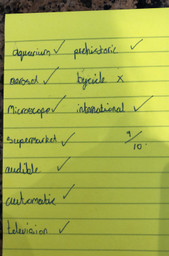 aquarium ✓ prehistoric ✓
aerosol ✓ bycicle x
Microscope ✓ international ✓
Supermarket ✓ 9/10
audible ✓
automatic ✓
television ✓